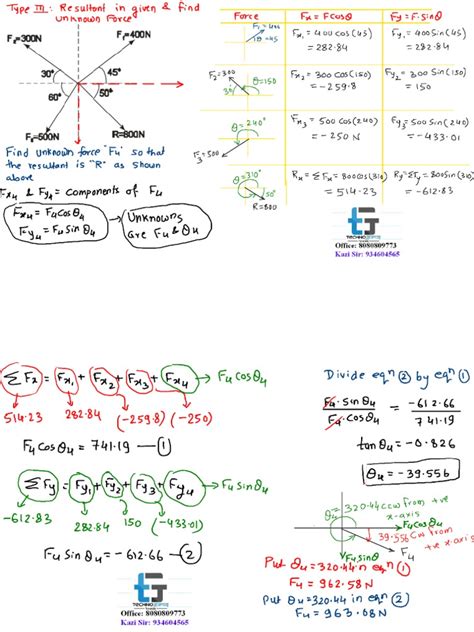 Type III: Resultant in given & find
unknown Force
F₂=300N
F₁=400N
30°
45°
60°
50°
F₃=500N
R=800N
Find unknown force "F₄" so that
the resultant is "R" as shown
above
Fx₄ & Fy₄ = components of F₄
Fx₄ = F₄cosθ₄
Fy₄ = F₄sinθ₄
→ Unknowns
are F₄ & θ₄
Force
Fx = Fcosθ
Fy = F·sinθ
F₁ = 400
θ=45
Fx₁ = 400 cos(45)
= 282.84
Fy₁ = 400 Sin(45)
= 282.84
F₂=300
θ=150
30
Fx₂ = 300 Cos(150)
= -259.8
Fy₂ = 300 Sin(150)
= 150
θ=240°
F₃=500
Fx₃ = 500 cos(240)
= -250 N
Fy₃ = 500 sin(240)
= -433.01
θ=310°
50°
R=800
Rx = ΣFx = 800cos(310)
= 514.23
Ry = ΣFy = 800sin(310)
= -612.83
Office: 8080809773
Kazi Sir: 934604565
ΣFx = Fx₁ + Fx₂ + Fx₃ + Fx₄ → F₄cosθ₄
514.23 282.84 (-259.8) (-250)
F₄cosθ₄ = 741.19 — (1)
ΣFy = Fy₁ + Fy₂ + Fy₃ + Fy₄ → F₄sinθ₄
-612.83 282.84 150 (-433.01)
F₄ sinθ₄ = -612.66 — (2)
Office: 8080809773
Kazi Sir: 934604565
Divide eqⁿ (2) by eqⁿ (1)
F₄·sinθ₄ / F₄·cosθ₄ = -612.66 / 741.19
tanθ₄ = -0.826
θ₄ = -39.556
θ₄ = 320.44 ccw from +ve
x-axis
F₄cosθ
39.556 cw from
+ve x-axis
F₄sinθ
F₄
Put θ₄=320.44 in eqⁿ (1)
F₄ = 962.58 N
Put θ₄=320.44 in eqⁿ (2)
F₄ = 963.08 N